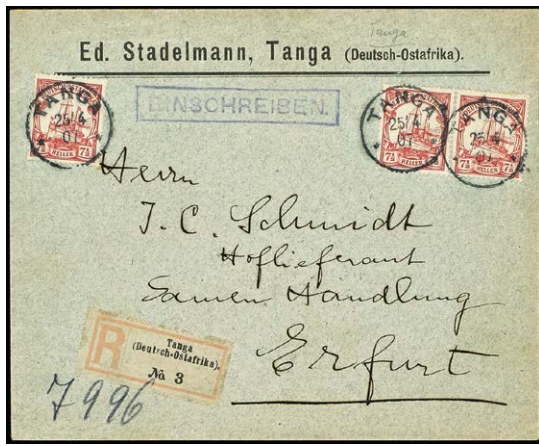 Tanga
Ed. Stadelmann, Tanga (Deutsch-Ostafrika).
EINSCHREIBEN.
TANGA
25/4
07
7½ HELLER 7½
TANGA
25/4
07
7½ HELLER 7½
TANGA
25/4
07
7½ HELLER 7½
Herrn
J. C. Schmidt
Hoflieferant
Samen Handlung
Erfurt
R
Tanga
(Deutsch-Ostafrika).
No 3
7996